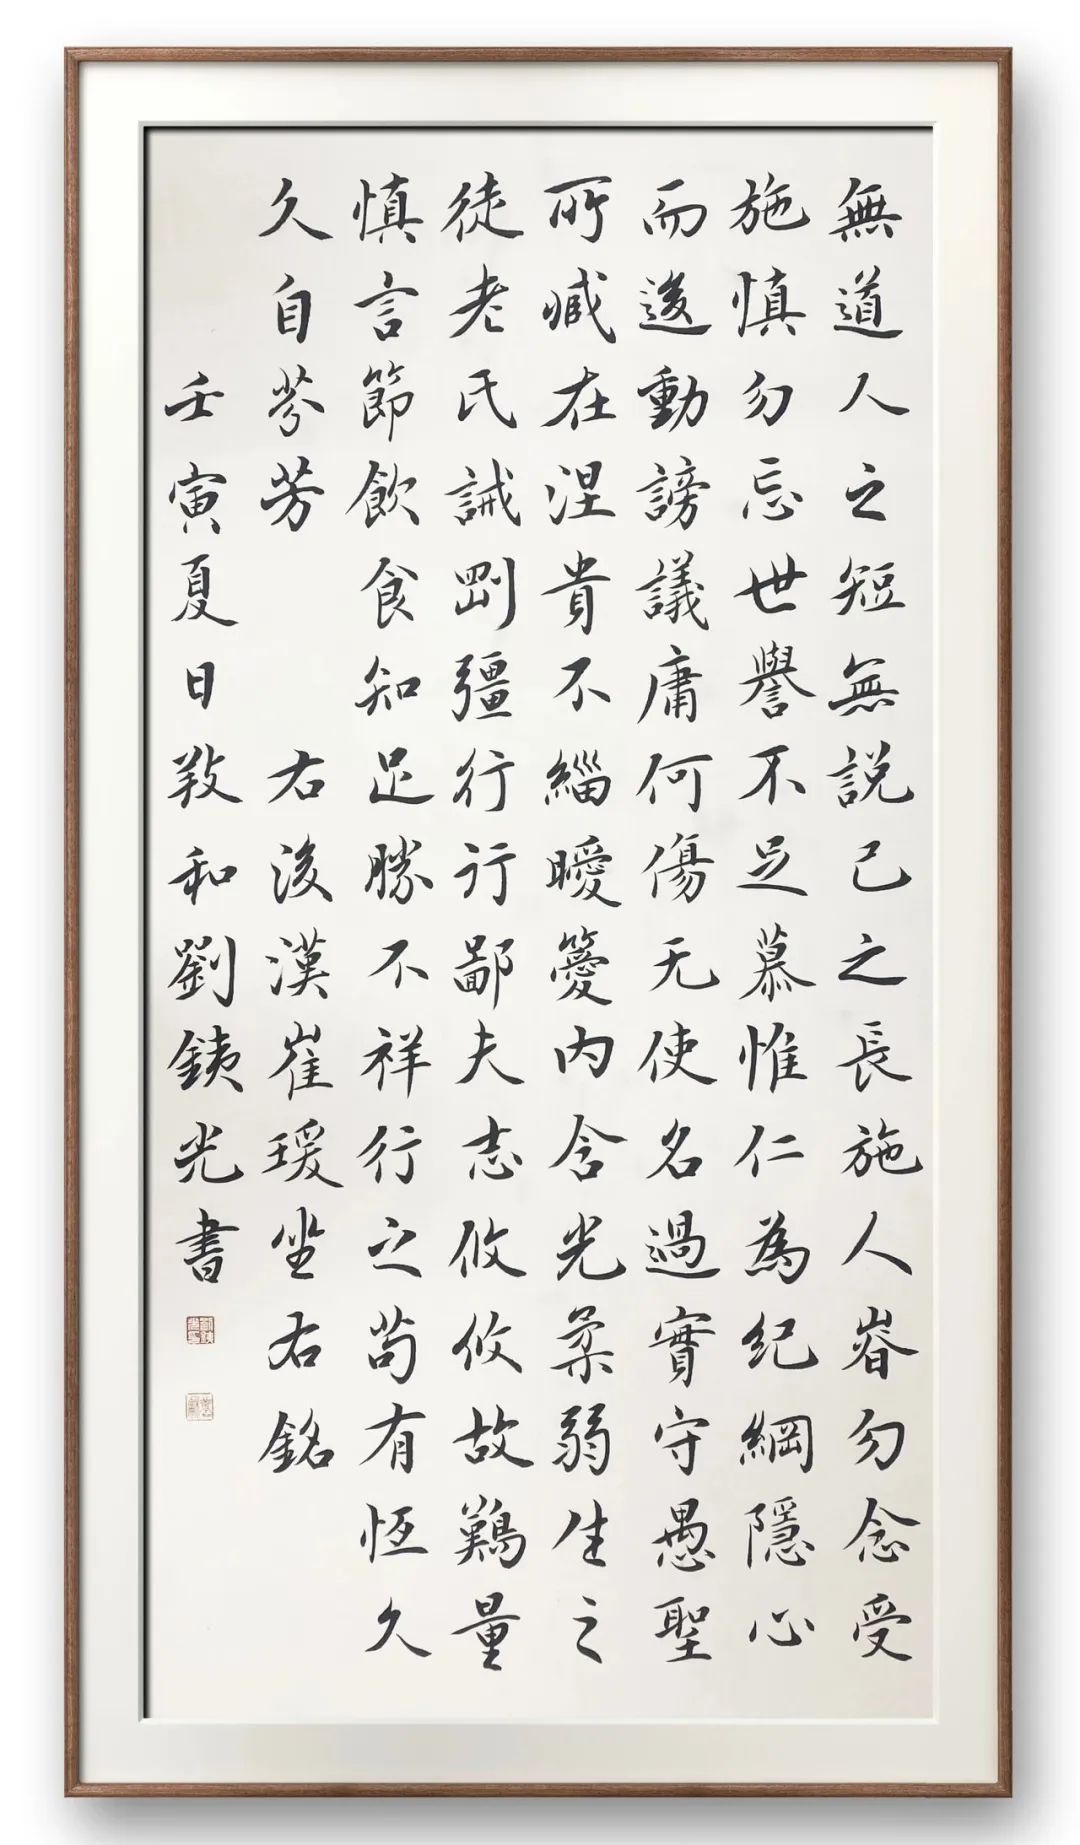 無道人之短無説己之長施人眘勿念受
施慎勿忘世譽不足慕惟仁為紀綱隱心
而後動謗議庸何傷无使名過實守愚聖
所臧在涅貴不緇曖薆內含光柔弱生之
徒老氏誡剛彊行行鄙夫志攸攸故難量
慎言節飲食知足勝不祥行之苟有恆久
久自芬芳 右後漢崔瑗坐右銘
壬寅夏日𢼝和劉銕光書